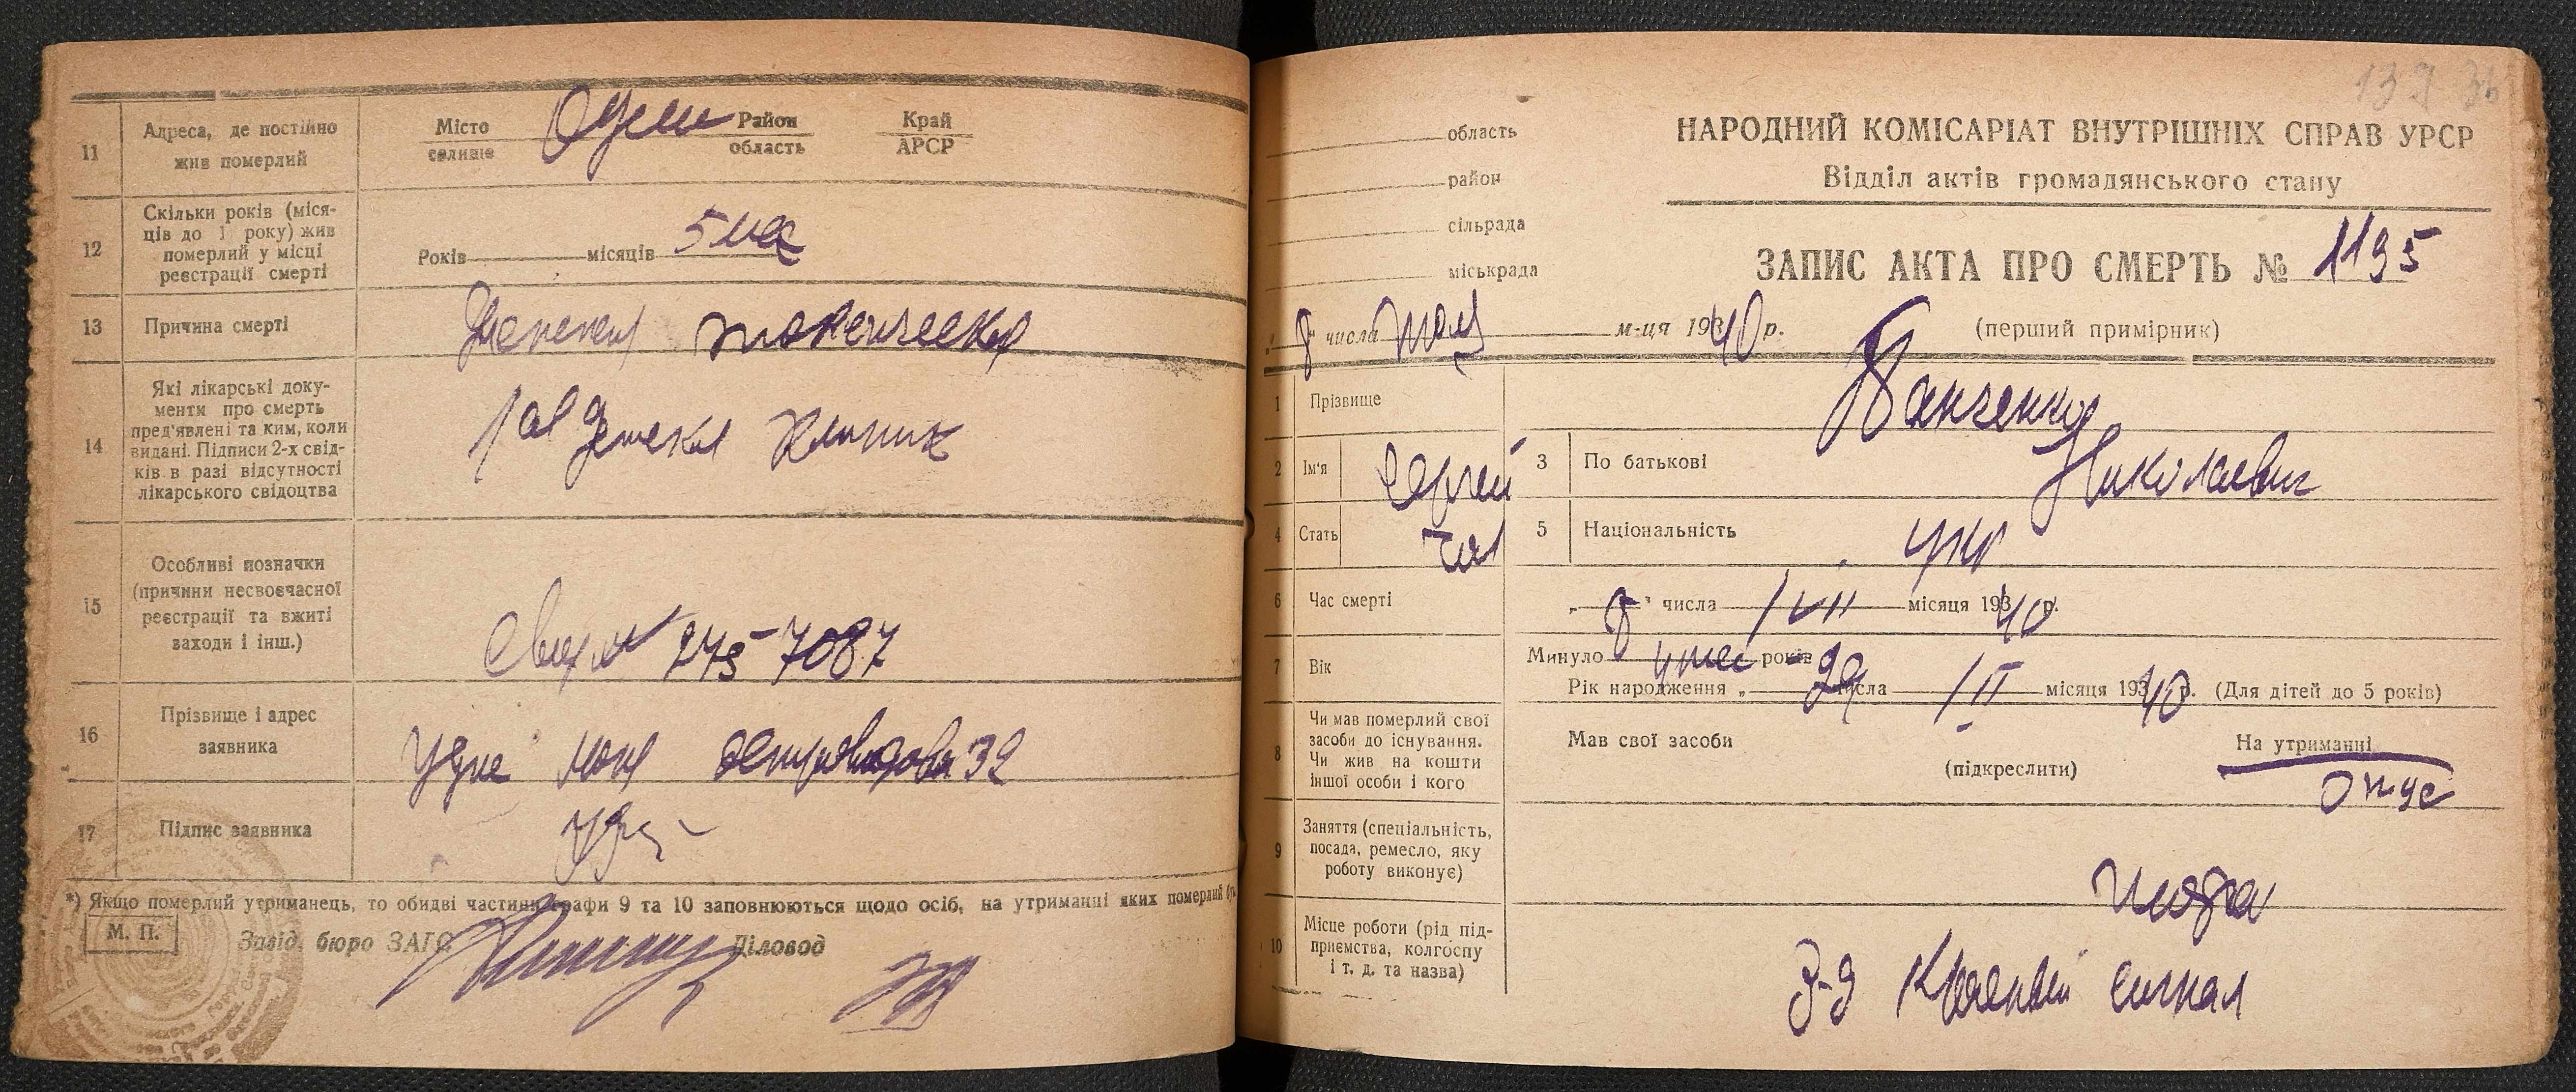 11
Адреса, де постійно
жив померлий
Місто
селище
Одесса
Район
область
Край
АРСР
12
Скільки років (міся-
ців до 1 року) жив
померлий у місці
реєстрації смерті
Років місяців 5 мес
13
Причина смерті
токсическая
14
Які лікарські доку-
менти про смерть
пред'явлені та ким, коли
видані. Підписи 2-х свід-
ків в разі відсутності
лікарського свідоцтва
1ая Детская клиник
15
Особливі позначки
(причини несвоєчасної
реєстрації та вжиті
заходи і інш.)
№ 245-7087
16
Прізвище і адрес
заявника
32
17
Підпис заявника
*) Якщо померлий утриманець, то обидві частини графи 9 та 10 заповнюються щодо осіб, на утриманні яких померлий
М. П.
Завід. бюро ЗАГС Діловод
137 36
область
район
сільрада
міськрада
НАРОДНИЙ КОМІСАРІАТ ВНУТРІШНІХ СПРАВ УРСР
Відділ актів громадянського стану
ЗАПИС АКТА ПРО СМЕРТЬ № 1195
„8" числа июля м-ця 1940 р. (перший примірник)
1
Прізвище
Панченко
2
Ім'я
Сергей
3
По батькові
Николаевич
4
Стать
5
Національність
укр
6
Час смерті
„8" числа VII місяця 1940 р.
7
Вік
Минуло років
Рік народження „29 числа II місяця 1940 р. (Для дітей до 5 років)
8
Чи мав померлий свої
засоби до існування.
Чи жив на кошти
іншої особи і кого
Мав свої засоби
(підкреслити)
На утриманні
отца
9
Заняття (спеціальність,
посада, ремесло, яку
роботу виконує)
10
Місце роботи (рід під-
приємства, колгоспу
і т. д. та назва)
З-д Красный сигнал